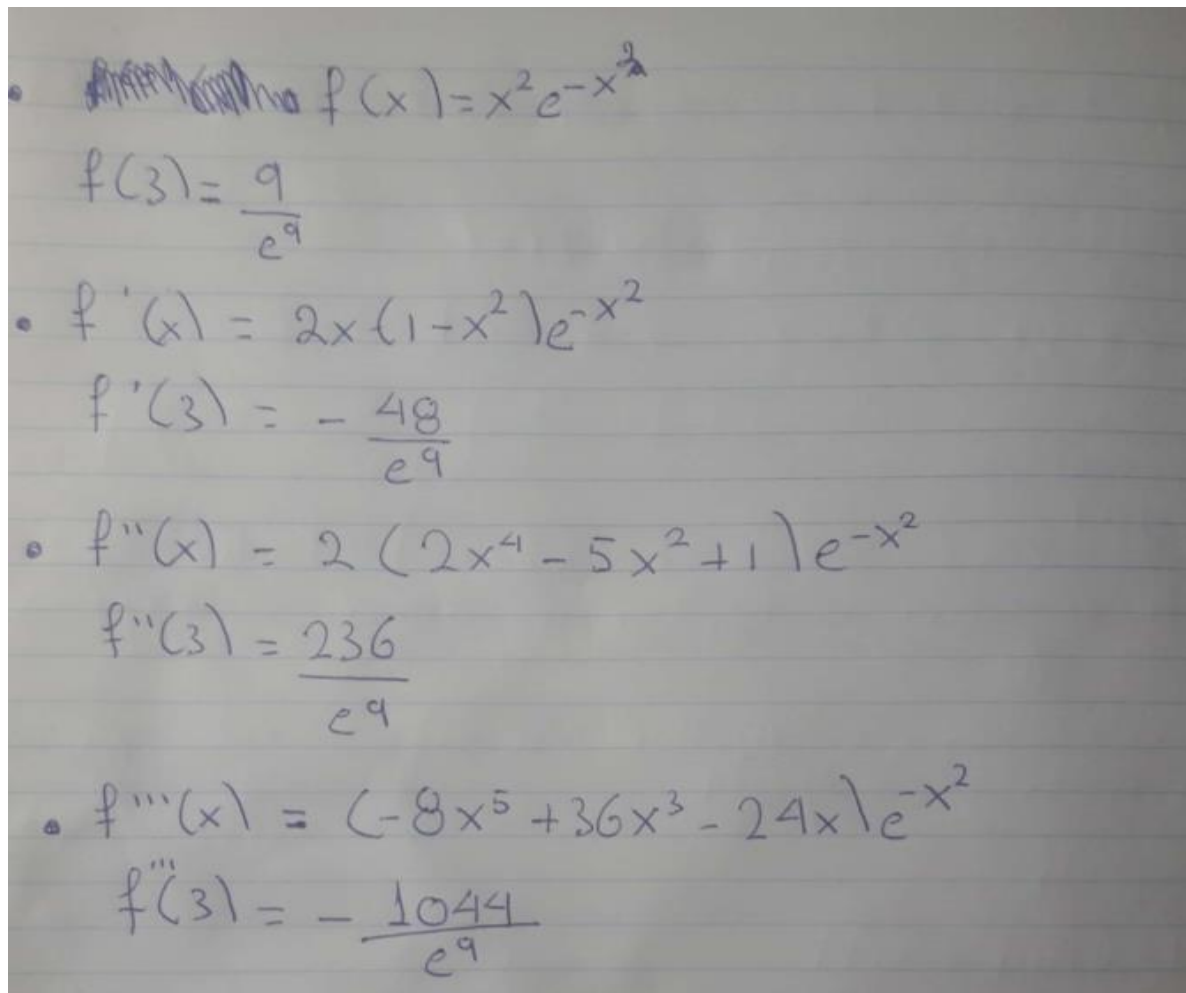 • f(x)=x²e^{-x²}
f(3)= 9/e⁹
• f'(x) = 2x(1-x²)e^{-x²}
f'(3) = - 48/e⁹
• f''(x) = 2(2x⁴-5x²+1)e^{-x²}
f''(3) = 236/e⁹
• f'''(x) = (-8x⁵+36x³-24x)e^{-x²}
f'''(3) = - 1044/e⁹